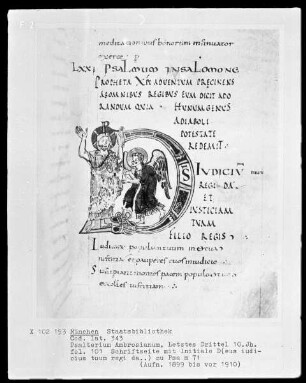 LXXI PSALMUM IN SALOMONE
PROPHETA XPI ADVENTUM PRECINENS
ABOMNIBUS REGIBUS EUM DICIT ADO
RANDUM QUIA HUMUM GENUS
ADIABOLI
POTESTATE
REDEMIT
DS
IUDICIUM
REGI DA
ET
IUSTICIAM
TUAM
FILIO REGIS
Iudicare populum tuum in
iusticia et pauperes tuos iniudicio
Suscipiant montes pacem populo
et colles iusticiam
X 102 153 München Staatsbibliothek
Cod. lat. 343
Psalterium Ambrosianum, Letztes Drittel 10.Jh.
fol. 101 Schriftseite mit Initiale D(eus iudi-
cium tuum regi da..) zu Psalm 71
(Aufn. 1899 bis vor 1910)